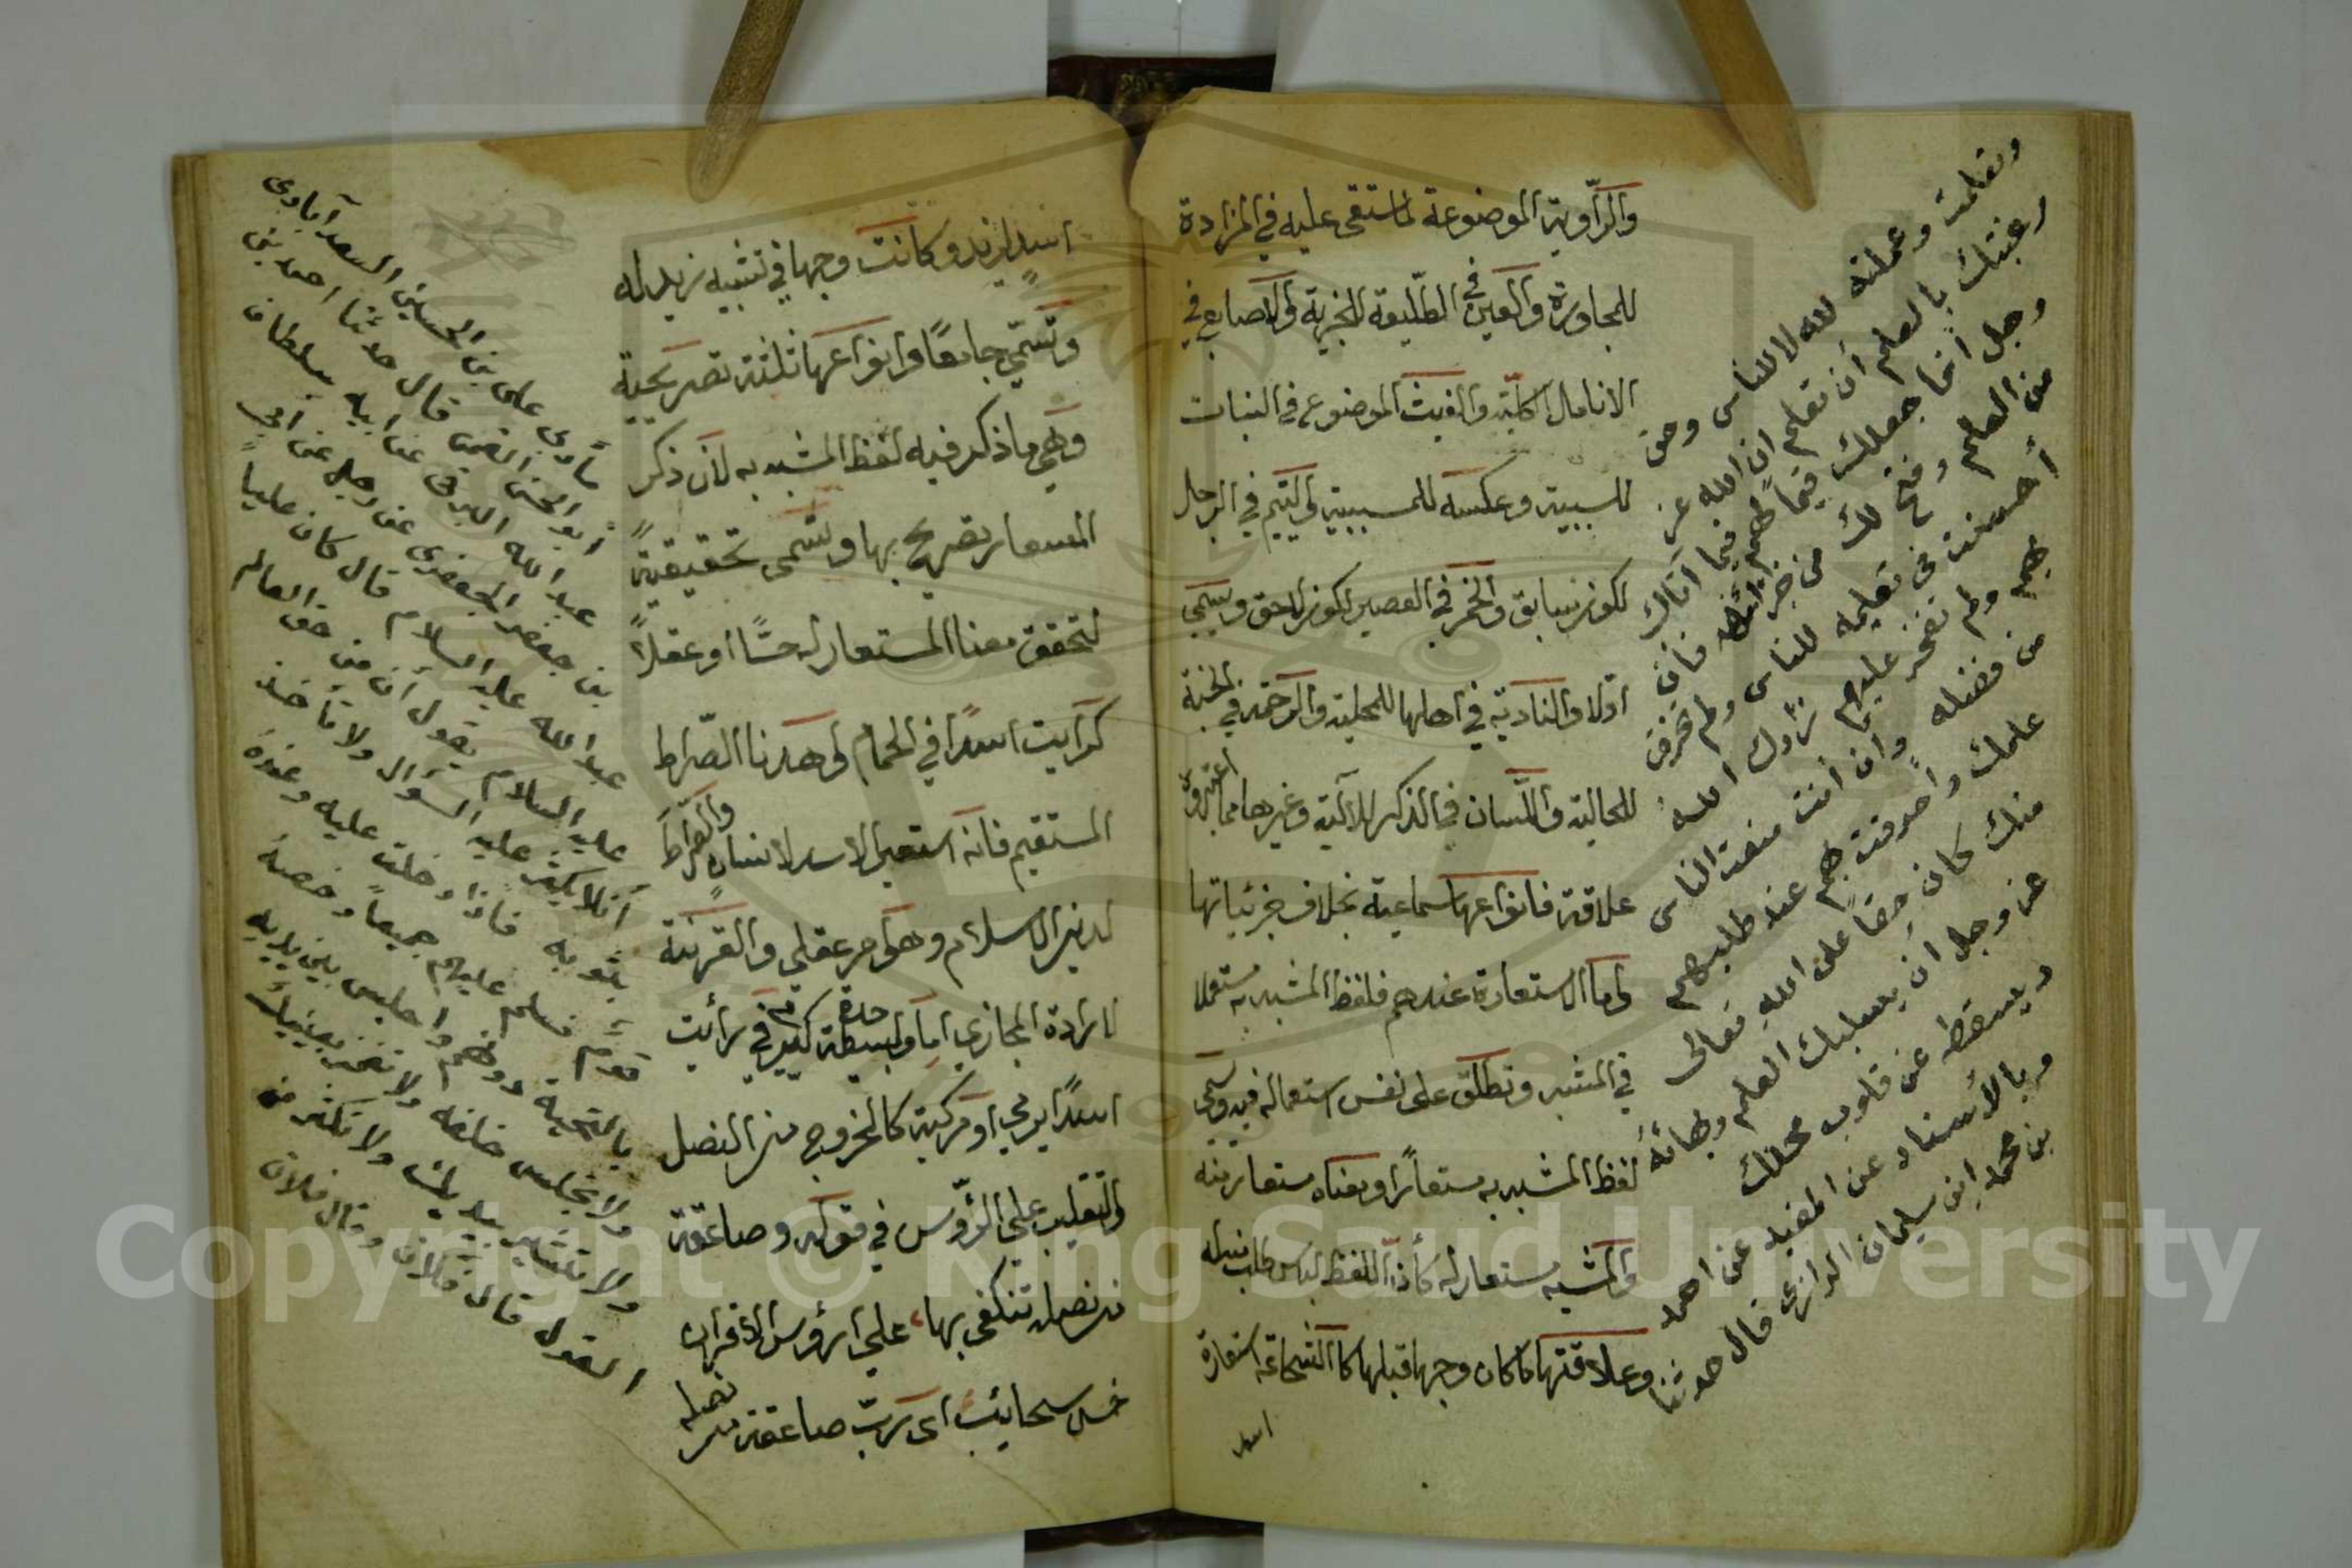 والراوية الموضوعة لما استقى عليه في المزادة
للمجاورة والعين في الطليعة للجزئية والاصابع في
الانامل للكلية والغيث الموضوع في النبات
للسببية وعكسه للمسببية واليتيم في الرجل
لكون سابق والخمر في العصير لكون لاحق ويسمى
اولا والنادية في اهلها للمحلية والرحمة في الجنة
للحالية واللسان في الذكر للآلية وغيرها مما اعتبروه
علاقة فانواعها سماعية بخلاف جزئياتها
واما الاستعارة عندهم فلفظ المشبه به مستعملا
في المشبه وتطلق على نفس استعماله فيه ويسمى
لفظ المشبه به مستعارا ومعناه مستعار منه
والمشبه مستعار له كأن اللفظ لباس طلب منه له
وعلاقتها ما كان وجها قبلها كالشجاعة استعارة
اسد
وتعلمت وعملته لله لا للناس وحق
رغبتك بالعلم ان تعلم ان الله عز
وجل انما جعلك قيما لهم فيما آتاك
من العلم وفتح لك من خزائنه فان
أحسنت في تعليمه للناس ولم تخرق
بهم ولم تضجر عليهم زادك الله
من فضله وان أنت منعت الناس
علمك واخرقت بهم عند طلبهم
منك كان حقا على الله تعالى
عز وجل ان يسلبك العلم وبهائه
ويسقط عن قلوب محلك
وبالأسناد عن المفيد عن احمد
بن محمد ابن سليمان الرازى قال حدثنا
اسد لزيد وكانت وجها في تشبيه زيد له
وتسمى جامعا وانواعها ثلثة تصريحية
وهي ما ذكر فيه لفظ المشبه به لان ذكر
المستعار تصريح بها وتسمى تحقيقية
لتحقق معنا المستعار له حسا او عقلا
كرأيت اسدا في الحمام واهدنا الصراط
المستقيم فانه استعير الاسد لانسان والصراط
لدين الاسلام وهو امر عقلي والقرينة
لارادة المجازي اما بسيطة كيرمي في رأيت
اسدا يرمي او مركبة كالخروج من النصل
والتقليب على الرؤس في قوله وصاعقة
من نصله تنكفى بها على ارؤس الاقران
خمس سحائب اى رب صاعقة من نصله
مأوى على بن الحسين السعدآبادى
أبو الحسن القمى قال حدثنا احمد بن
عبد الله البرقى عن ابيه سلطان
بن جعفر الجعفرى عن رجل عن ابى
عبد الله عليه السلام قال كان عليا
عليه السلام يقول أن من حق العالم
أن لا يكثر عليه السؤال ولا تأخذ
بثوبه فاذا دخلت عليه وعنده
قوم فسلم عليهم جميعا وخصه
بالتحية دونهم واجلس بين يديه
ولا تجلس خلفه ولا تغمز بعينيك
ولا تشير بيديك ولا تكثر من
القول قال فلان وقال فلان
Copyright © King Saud University